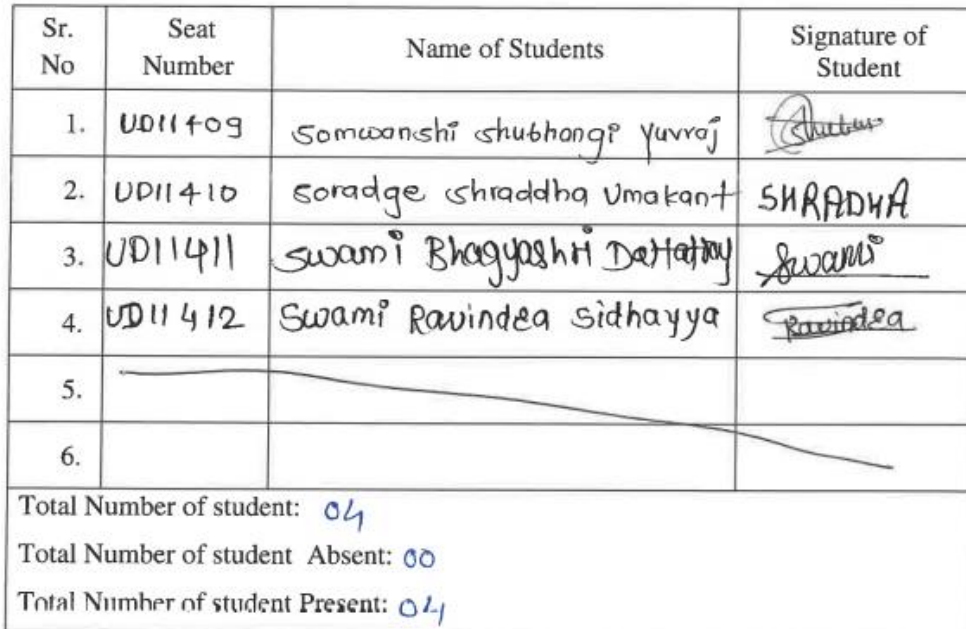 Sr. No Seat Number Name of Students Signature of Student
1. UD11409 Somwanshi shubhangi Yuvraj
2. UD11410 Soradge shraddha Umakant SHRADHA
3. UD11411 Swami Bhagyashri Dattatray Swami
4. UD11412 Swami Ravindra Sidhayya Ravindra
5.
6.
Total Number of student: 04
Total Number of student Absent: 00
Total Number of student Present: 04